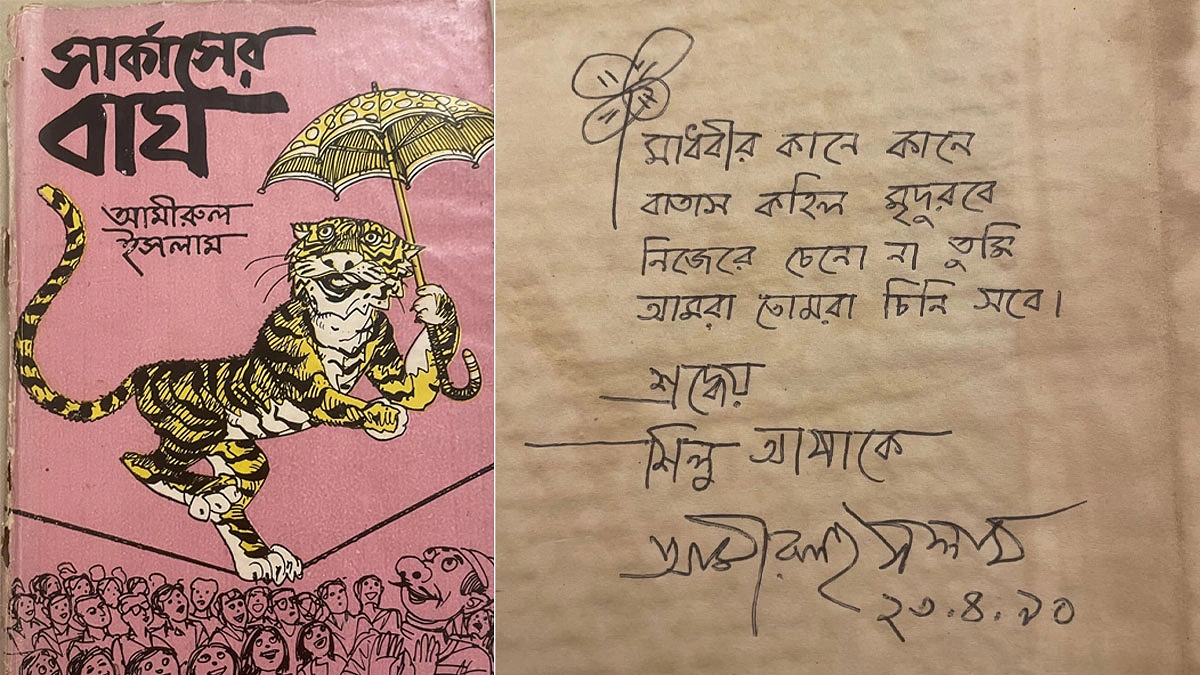 সার্কাসের
বাঘ
আমীরুল
ইসলাম
মাধবীর কানে কানে
বাতাস কহিল মৃদুরবে
নিজেরে চেনো না তুমি
আমরা তোমরা চিনি সবে।
শ্রদ্ধেয়
মিলু আমাকে
আমীরুল ইসলাম
২৩.৪.৯০